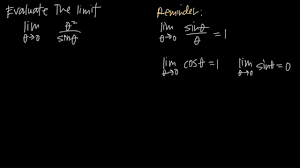 Evaluate The limit
lim θ→0 θ²/sinθ
Reminder:
lim θ→0 sinθ/θ = 1
lim θ→0 cosθ = 1 lim θ→0 sinθ = 0